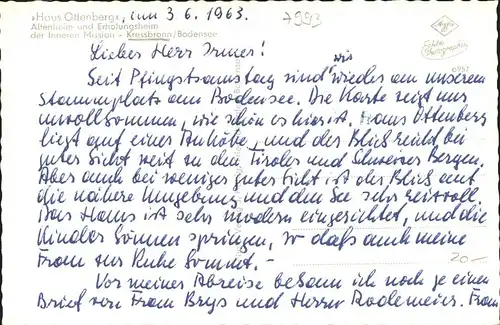 »Haus Ottenberg«, am 3.6.1963.
7993
Altenheim und Erholungsheim
der Inneren Mission - Kressbronn/Bodensee
Agfa
Echte Photographie
Lieber Herr Irmer!
Seit Pfingstsamstag sind wir wieder an unserem
Stammplatz am Bodensee. Die Karte zeigt nur
unvollkommen, wie schön es hier ist. Haus Ottenberg
liegt auf einer Anhöhe, und der Blick reicht bei
guter Sicht weit zu den Tiroler und Schweizer Bergen.
Aber auch bei weniger guter Sicht ist der Blick auf
die nähere Umgebung und den See sehr reizvoll.
Das Haus ist sehr modern eingerichtet, und die
Kinder können springen, so daß auch meine
Frau zur Ruhe kommt. -
20-
Vor meiner Abreise bekam ich noch je einen
Brief von Frau Brys und Herrn Rademeier. Frau